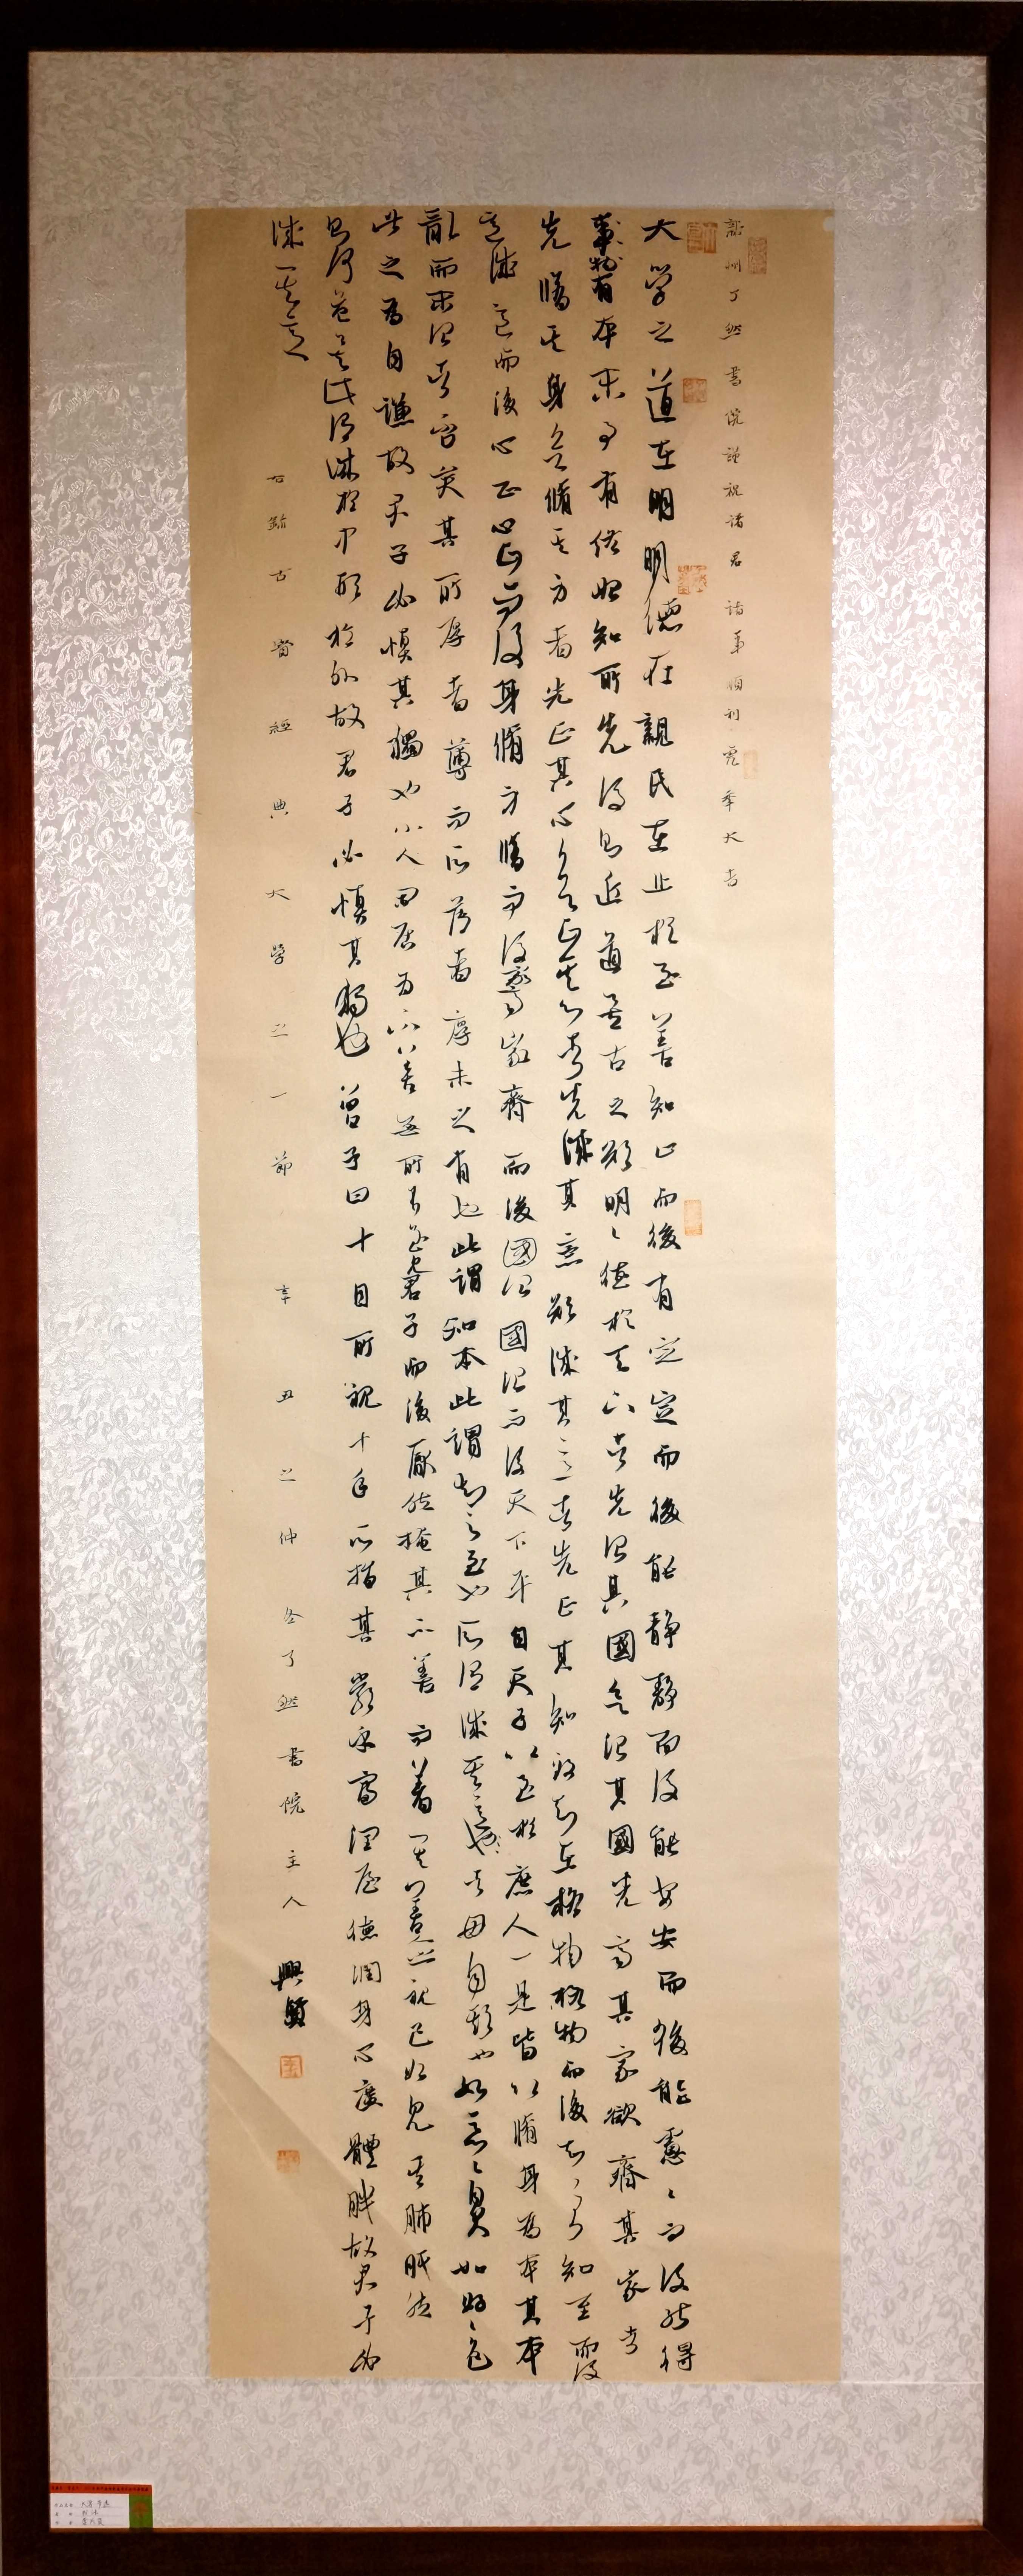 㓯州了然書院謹祝諸君諸事順利虎年大吉
大學之道在明明德在親民在止於至善知止而後有定定而後能静静而後能安安而後能慮々而後能得
事物有本末事有終始知所先後則近道矣古之欲明々德於天下者先治其國欲治其國先齊其家欲齊其家者
先脩其身欲脩其方者先正其心欲正其心者先誠其意欲誠其意者先正其知致知在格物格物而後知々々知至而後
意誠意而後心正心正而後身脩身脩而後家齊家齊而後國治國治而後天下平自天子以至於庶人一是皆以脩身為本其本
亂而末治者否矣其所厚者薄而所薄者厚未之有也此謂知本此謂知之至也所謂誠其意者毋自欺也如惡々臭如好々色
此之為自謙故君子必慎其獨也小人閒居為不善無所不至見君子而後厭然掩其不善而著其善人之視己如見其肺肝然
則何益矣此謂誠於中形於外故君子必慎其獨也曾子曰十目所視十手所指其嚴乎富潤屋德潤身心廣體胖故君子必
誠其意
右錄古賢經典大學之一節 辛丑之仲冬了然書院主人興賢